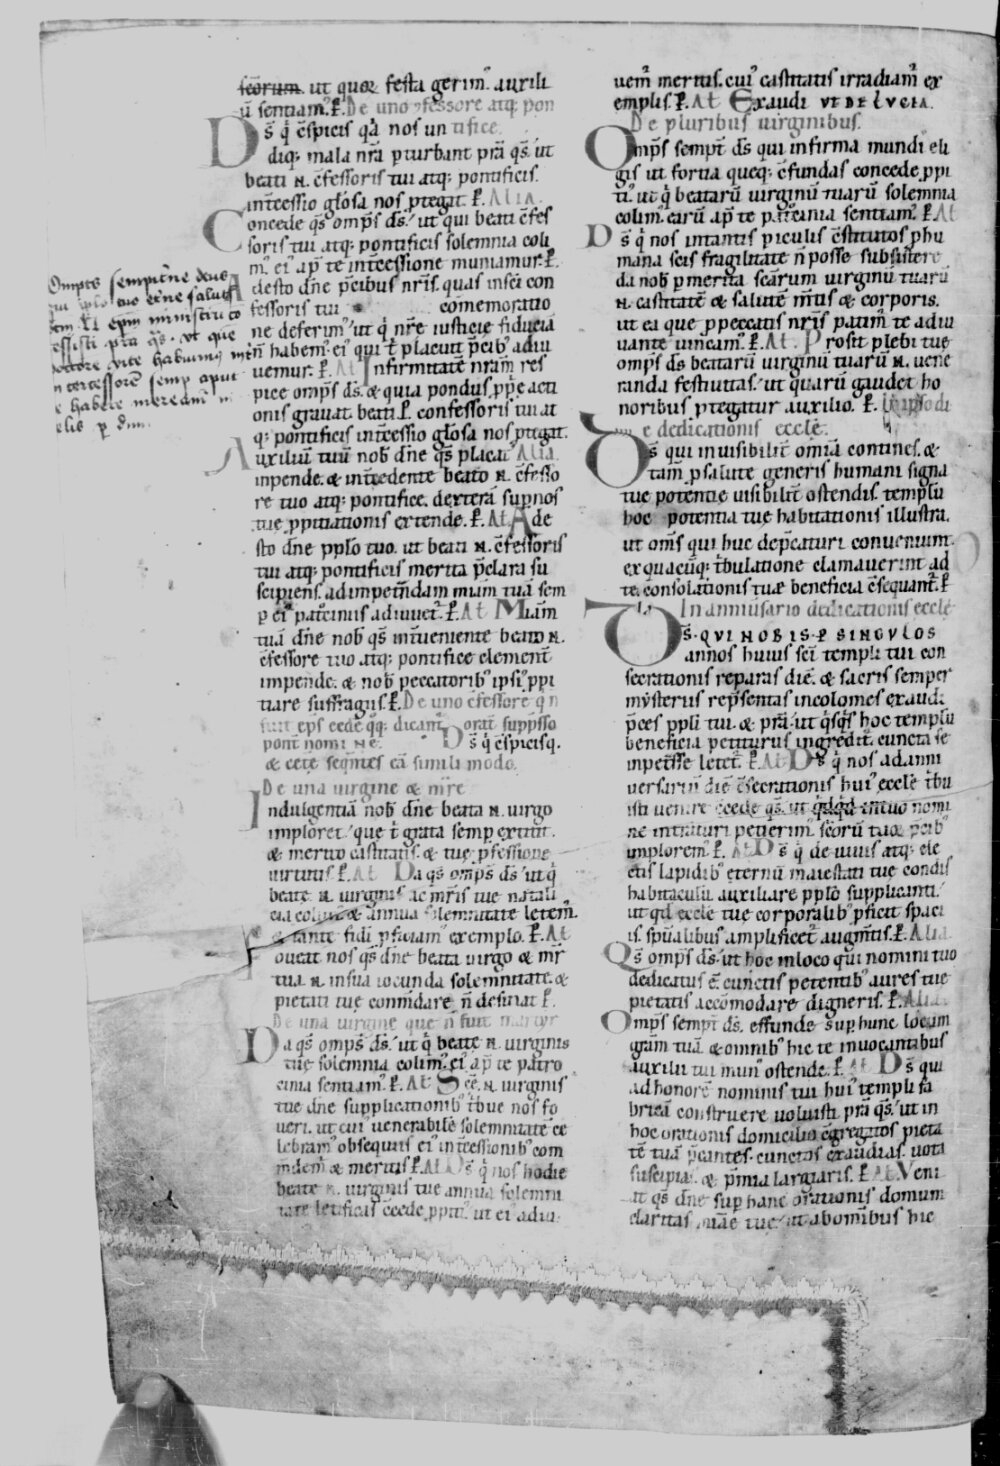 scõrum. ut quoꝝ festa gerim᾽. auxili
ũ sentiam᾽. ꝑ. De uno ɔfessore atq; pon
D s̄ q̇ c̄spicis qa nos un tifice.
diq; mala nr̃a ꝑturbant pr̃a qs̄. ut
beati N. c̄fessoris tui atq; pontificis.
int̃cessio glõsa nos ꝓtegat. ꝑ. Alia.
Concede qs̄ omp̄s ds̄. ut qui beati c̄fes
soris tui atq; pontificis solemnia coli
m᾽. ei᾽ ap̄ te int̃cessione muniamur. ꝑ.
Adesto dñe p̄cibus nr̃is. quas in sc̄i con
fessoris tui cõmemoratio
ne deferim᾽. ut q̇ nr̃e iusticie fiduciã
ñ habem᾽. ei᾽ qui t̄ placuit p̄cib᾽ adiu
uemur. ꝑ. At Infirmitatẽ nr̃am res
pice omp̄s ds̄. & quia pondus ꝓp̃e acti
onis grauat. beati N. confessoris tui at
q; pontificis int̃cessio glõsa nos ꝓtegat.
Auxiliũ tuũ nob᾽ dñe qs̄ placat᾽ Alia.
inpende. & int̃cedente beato N. c̄fesso
re tuo atq; pontifice. dexterã sup̱ nos
tuę ꝓpitiationis extende. ꝑ. At. Ade
sto dñe pplo tuo. ut beati N. c̄fessoris
tui atq; pontificis merita p̄clara su
scipiens. ad impet̃ndam mĩam tuã sem
ꝑ ei᾽ pat̃ciniis adiuuet᾽. ꝑ. At Mĩam
tuã dñe nob᾽ qs̄ int̃ueniente beato N.
c̄fessore tuo atq; pontifice clement᾽
impende. & nob᾽ peccatorib᾽ ipsi᾽ ꝓpi
tiare suffragiis. ꝑ. De uno c̄fessore q̇ ñ
fuit ep̄s
pont nomi ne. D s̄ q̇ c̄spicis q.
& cetẽ seqñtes cã simili modo.
De una virgine & mr̃e
Indulgentiã nob᾽ dñe beata N. virgo
imploret. que t̄ grata semp̱ extitit.
& merito castitatis. & tuę ꝓfessione
uirtutis. ꝑ. At Da qs̄ omp̄s ds̄. ut q̇
beatę N. uirginis ac mr̃is tuę natali
cia colim᾽. & annua solemnitate letem᾽.
& tantę fidei ꝓficiam᾽ exemplo. ꝑ. At
Foueat nos qs̄ dñe beata uirgo & mr̃
tua N. in sua iocunda solemnitate. &
pietati tuę cõmdare ñ desinat ꝑ.
De una uirgine que ñ fuit martyr
Da qs̄ omp̄s ds̄. ut q̇ beatę N. uirginis
tuę solemnia colim᾽. ei᾽ ap̄ te patro
cinia sentiam᾽. ꝑ. At Sc̄ę N. uirginis
tuę dñe supplicationib᾽ t̄bue nos fo
ueri. ut cui᾽ uenerabilẽ solemnitatẽ ce
lebram᾽ obsequiis ei᾽ int̃cessionib᾽ com
m̃dem᾽ & meritis. ꝑ. At Ds̄ q̇ nos hodie
beatę N. uirginis tuę annua solemni
tate letificas c̄cede ꝓpiti᾽. ut ei᾽ adiu
uem᾽ meritis. cui᾽ castitatis irradiam᾽ ex
emplis. ꝑ. At Exaudi UT DE LUCIA.
De pluribus uirginibus.
Omp̄s sempt̃ ds̄ qui infirma mundi eli
gis ut fortia queq; c̄fundas concede ꝓpi
ti᾽. ut q̇ beatarũ uirginũ tuarũ solemnia
colim᾽. earũ ap̄ te pat̃cinia sentiam᾽. ꝑ. At
Ds̄ q̇ nos in tantis piculis c̄stitutos ꝓ hu
mana scis fragilitate ñ posse subsistere
da nob᾽ ꝓ merita scãrum uirginũ tuarũ
N. castitatẽ & salutẽ m̃tis & corporis.
ut ea que ꝓ peccatis nr̃is patim᾽. te adiu
uante uincam᾽. ꝑ. At. Prosit plebi tuę
omp̄s ds̄ beatarũ uirginũ tuarũ N. uene
randa festiuitas. ut quarũ gaudet ho
noribus ꝓtegatur auxilio. ꝑ. In ipso di
e dedicationis eccle᾽.
Ds̄ qui inuisibilit᾽ omĩa contines. &
tam᾽ ꝓ salute generis humani signa
tuę potentię uisibilit᾽ ostendis. templũ
hoc potentia tuę habitationis illustra.
ut om̃s qui huc dep̄caturi conueniunt.
ex quacũq; t̄bulatione clamauerint ad
te. consolationis tuæ beneficia c̄sequant᾽. ꝑ
In anniũsario dedicationis eccle᾽
Ds̄. QUI NOBIS. ꝑ SINGULOS
annos huius sc̄i templi tui con
secrationis reparas diẽ. & sacris semper
mysteriis rep̄sentas incolomes exaudi
p̄ces ppli tui. & pr̃a. ut q̇sq̇s hoc templũ
beneficia petiturus ingredit᾽. cuncta se
inpet̃sse letet᾽. ꝑ. At Ds̄ q̇ nos ad anni
uersariũ diẽ c̄secrationis hui᾽ eccle t̄bu
isti uenire c̄cede qs̄. ut qd̃qd̃ in tuo nomi
ne intraturi petierim᾽. scõrũ tuoꝝ p̄cib᾽
implorem᾽. ꝑ. At Ds̄ q̇ de uiuis atq; ele
ctis lapidib᾽ eternũ maiestati tuę condis
habitaculũ auxiliare pplo supplicanti.
ut qd̃ eccle tuę corporalib᾽ ꝓficit spaci
is. spũalibus amplificet᾽ augm̃tis. ꝑ. Alia.
Qs̄ omp̄s ds̄. ut hoc in loco qui nomini tuo
dedicatus ẽ. cunctis petentib᾽ aures tuę
pietatis accõmodare digneris. ꝑ. Alia.
Omp̄s sempt̃ ds̄. effunde sup̱ hunc locum
gr̃am tuã. & omnib᾽ hic te inuocantibus
auxilii tui mun᾽ ostende. ꝑ. At Ds̄ qui
ad honorẽ nominis tui hui᾽ templi fa
bricã construere uoluisti pr̃a qs̄. ut in
hoc orationis domicilio c̄gregatos pieta
tẽ tuã p̄cantes. cunctos exaudias. uota
suscipias. & p̄mia largiaris. ꝑ. At. Veni
at qs̄ dñe sup̱ hanc orationis domum
claritas mĩæ tuę. ut ab omĩbus hic
Omp̄s sempit̃ne deus
qui pplo tuo et̃ne salutis
ministrũ co
cessisti pr̃a qs̄. ut quẽ
doctorẽ vite habuim᾽ in t̃ris
int̃cessorẽ semp̱ aput
te habere meream᾽ in
celis ꝑ dñm.